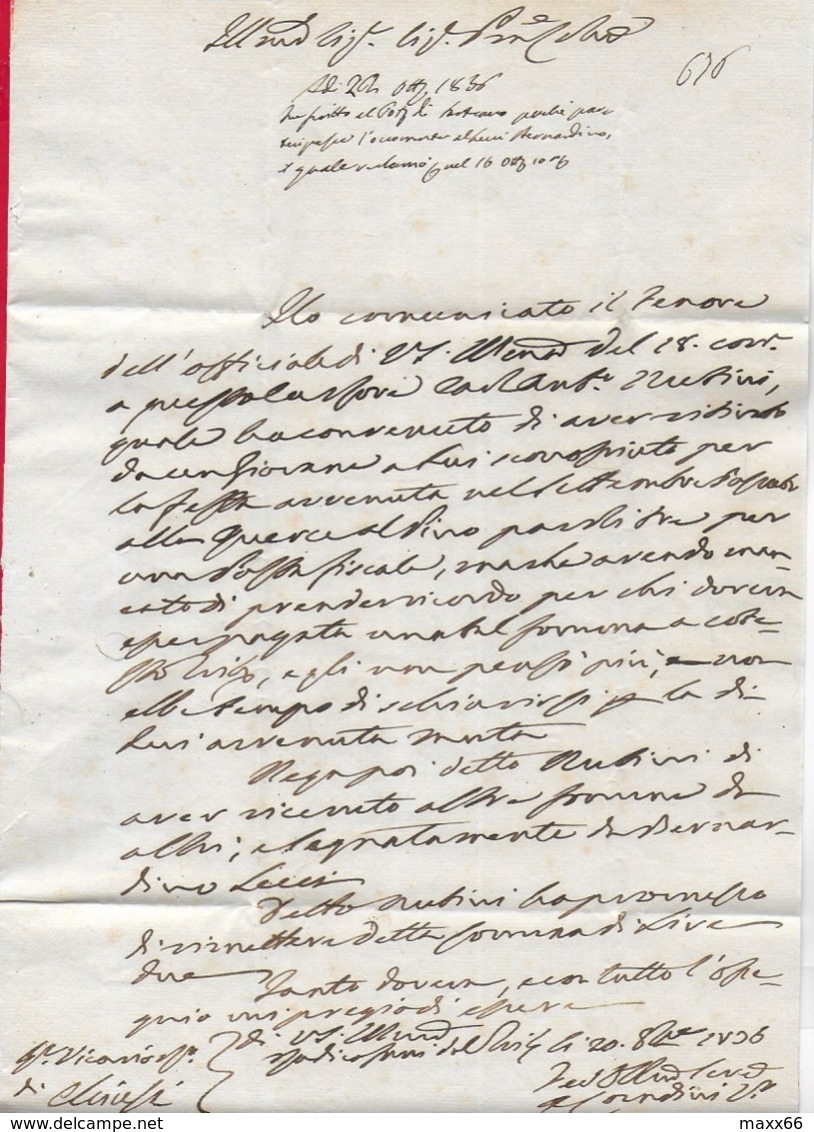 Illmo Sigr. Sigr. Pne Colmo
676
Adi 22 Ottb. 1836
scritto al Potà di perchè par-
l'occorrente al Lucii Bernardino,
il quale reclamò nel 16 Ottb.
Ho comunicato il tenore
dell'officiale di VS. Illma del 18. corre
a questo Ante. Rubini,
quale ha convenuto di aver ritirato
da un Giovane a lui sconosciuto per
la festa avvenuta nel Settembre passato
alla Querce al Pino paoli tre per
una tassa fiscale, ma che avendo man-
cato di prender ricordo per chi doveva
esser pagata una tal somma a cote-
sto Uffizio, egli non pensò più, e non
ebbe tempo di schiarirsi la di
lui avvenuta
Nega poi detto Rubini di
aver ricevuto altre somme da
altri, e segnatamente da Bernar-
dino Lucii
Detto Rubini ha promesso
di rimettere detta somma di Lire
due
Tanto doveva, e con tutto l'osse-
quio mi pregio di essere
di VS. Illma
Sigr. Vicario
di Chiusi
li 20. 8bre 1836